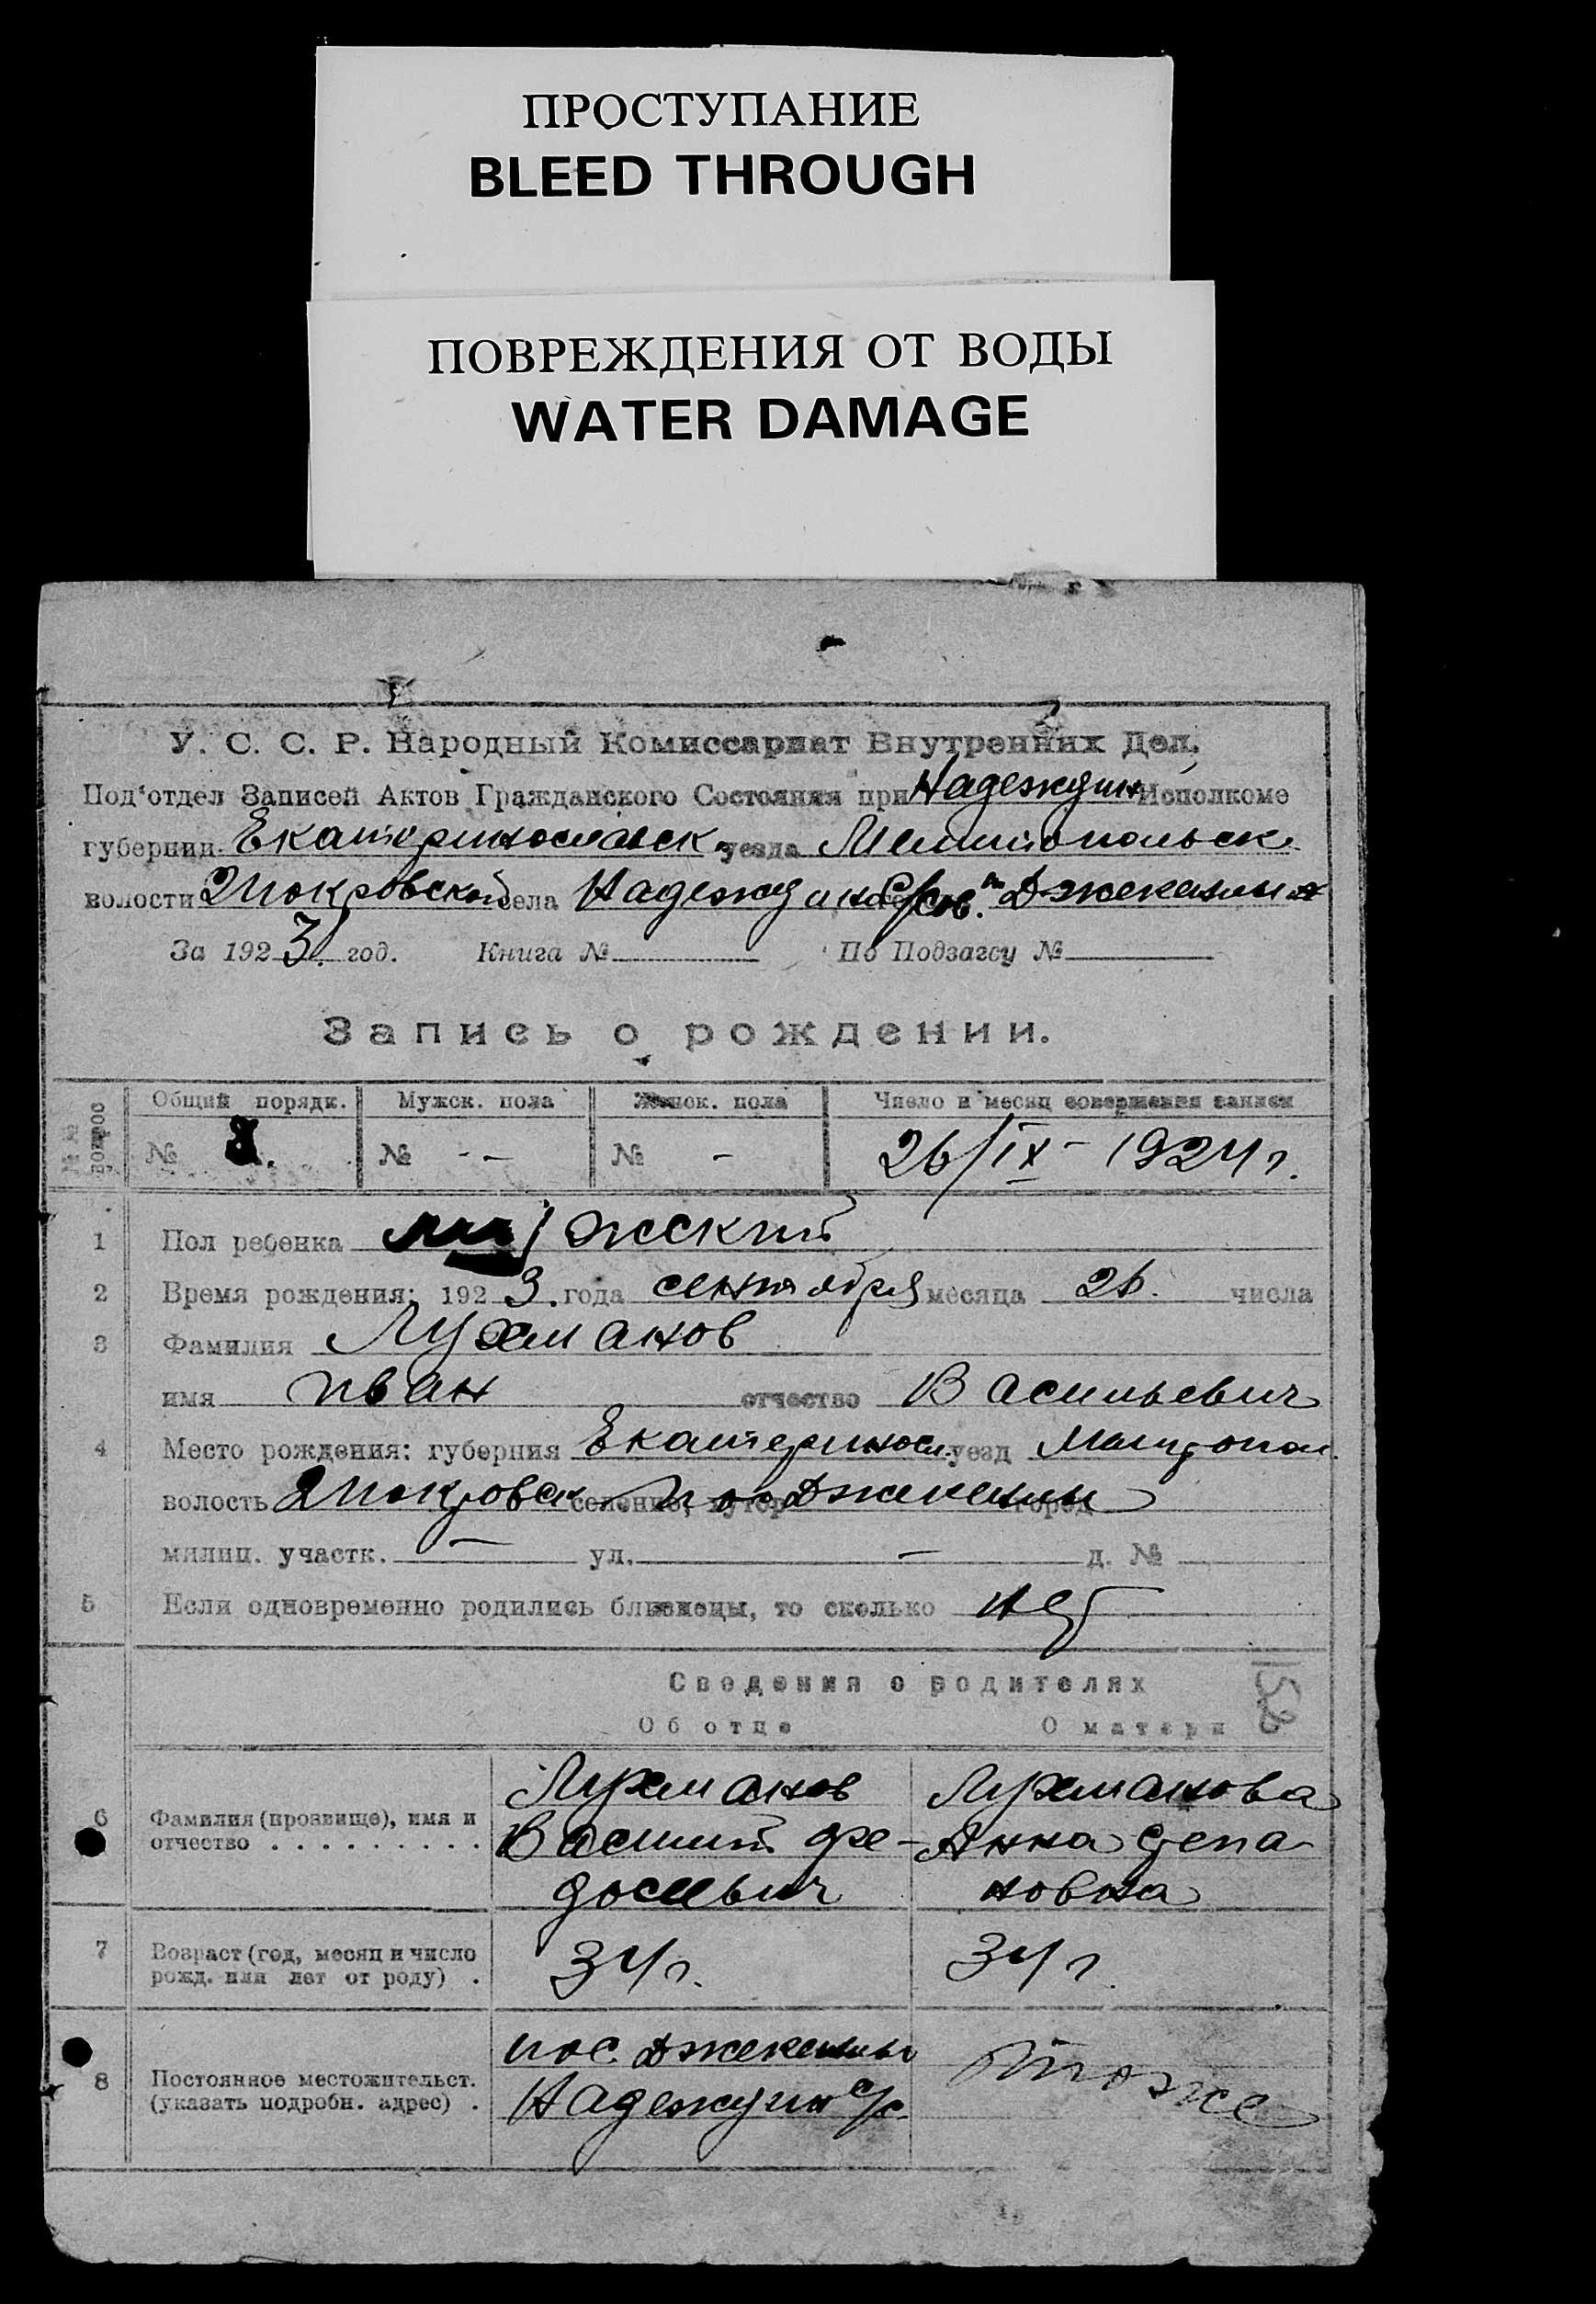 ПРОСТУПАНИЕ
BLEED THROUGH
ПОВРЕЖДЕНИЯ ОТ ВОДЫ
WATER DAMAGE
У. С. С. Р. Народный Комиссариат Внутренних Дел,
Под'отдел Записей Актов Гражданского Состояния при Надеждин Исполкоме
губернии Екатеринославск уезда Мелитопольск
волости Покровской села Надеждин С/сов. Джекельны
За 1923 год. Книга № По Подзагсу №
Запись о рождении.
№№ вопрос
Общий порядк. Мужск. пола Женск. пола Число и месяц совершения записи
№ № -- № - 26/IX - 1924 г.
1 Пол ребенка мужский
2 Время рождения: 1923. года сентября месяца 26. числа
3 Фамилия Лухманов
имя Иван отчество Васильевич
4 Место рождения: губерния Екатериносл. уезд Мелитопол.
волость Покровск селение, хутор пос Джекельны город
милиц. участк. — ул. — д. №
5 Если одновременно родились близнецы, то сколько нет
Сведения о родителях
152
Об отце О матери
6 Фамилия (прозвище), имя и отчество . . . . . . . . .
Лухманов Лухманова
Василий Фе- Анна Степа
досиевич новна
7 Возраст (год, месяц и число рожд. или лет от роду) . 34 г. 34 г.
8 Постоянное местожительст. (указать подробн. адрес) .
пос. Джекельны тоже
Надеждин с/с.